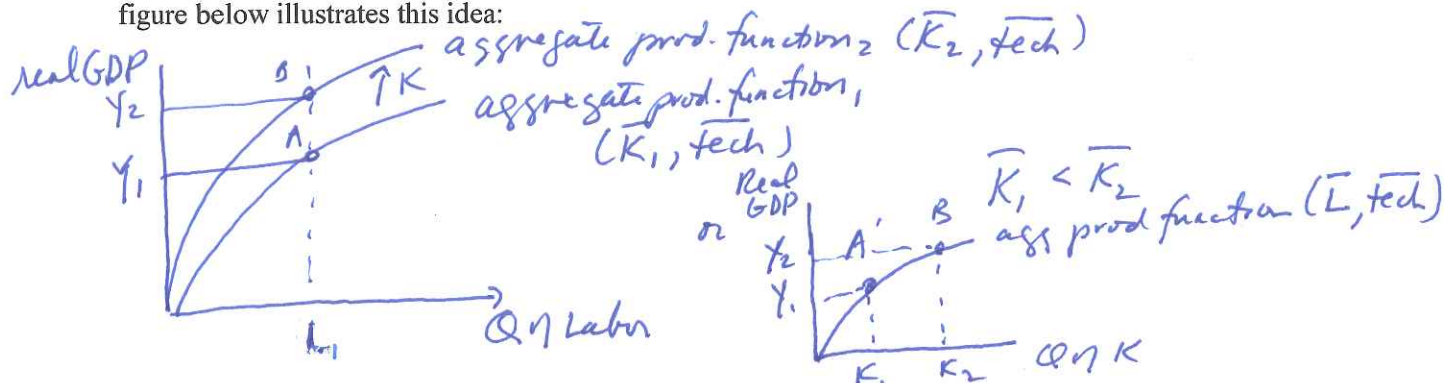 figure below illustrates this idea:
real GDP
Y2
Y1
B
A
↑K
L1
Q of Labor
aggregate prod. function2 (K̅2, t̅e̅c̅h̅)
aggregate prod. function1
(K̅1, t̅e̅c̅h̅)
K̅1 < K̅2
or
Real
GDP
Y2
Y1
A'
B
agg prod function (L̅, t̅e̅c̅h̅)
K1
K2
Q of K